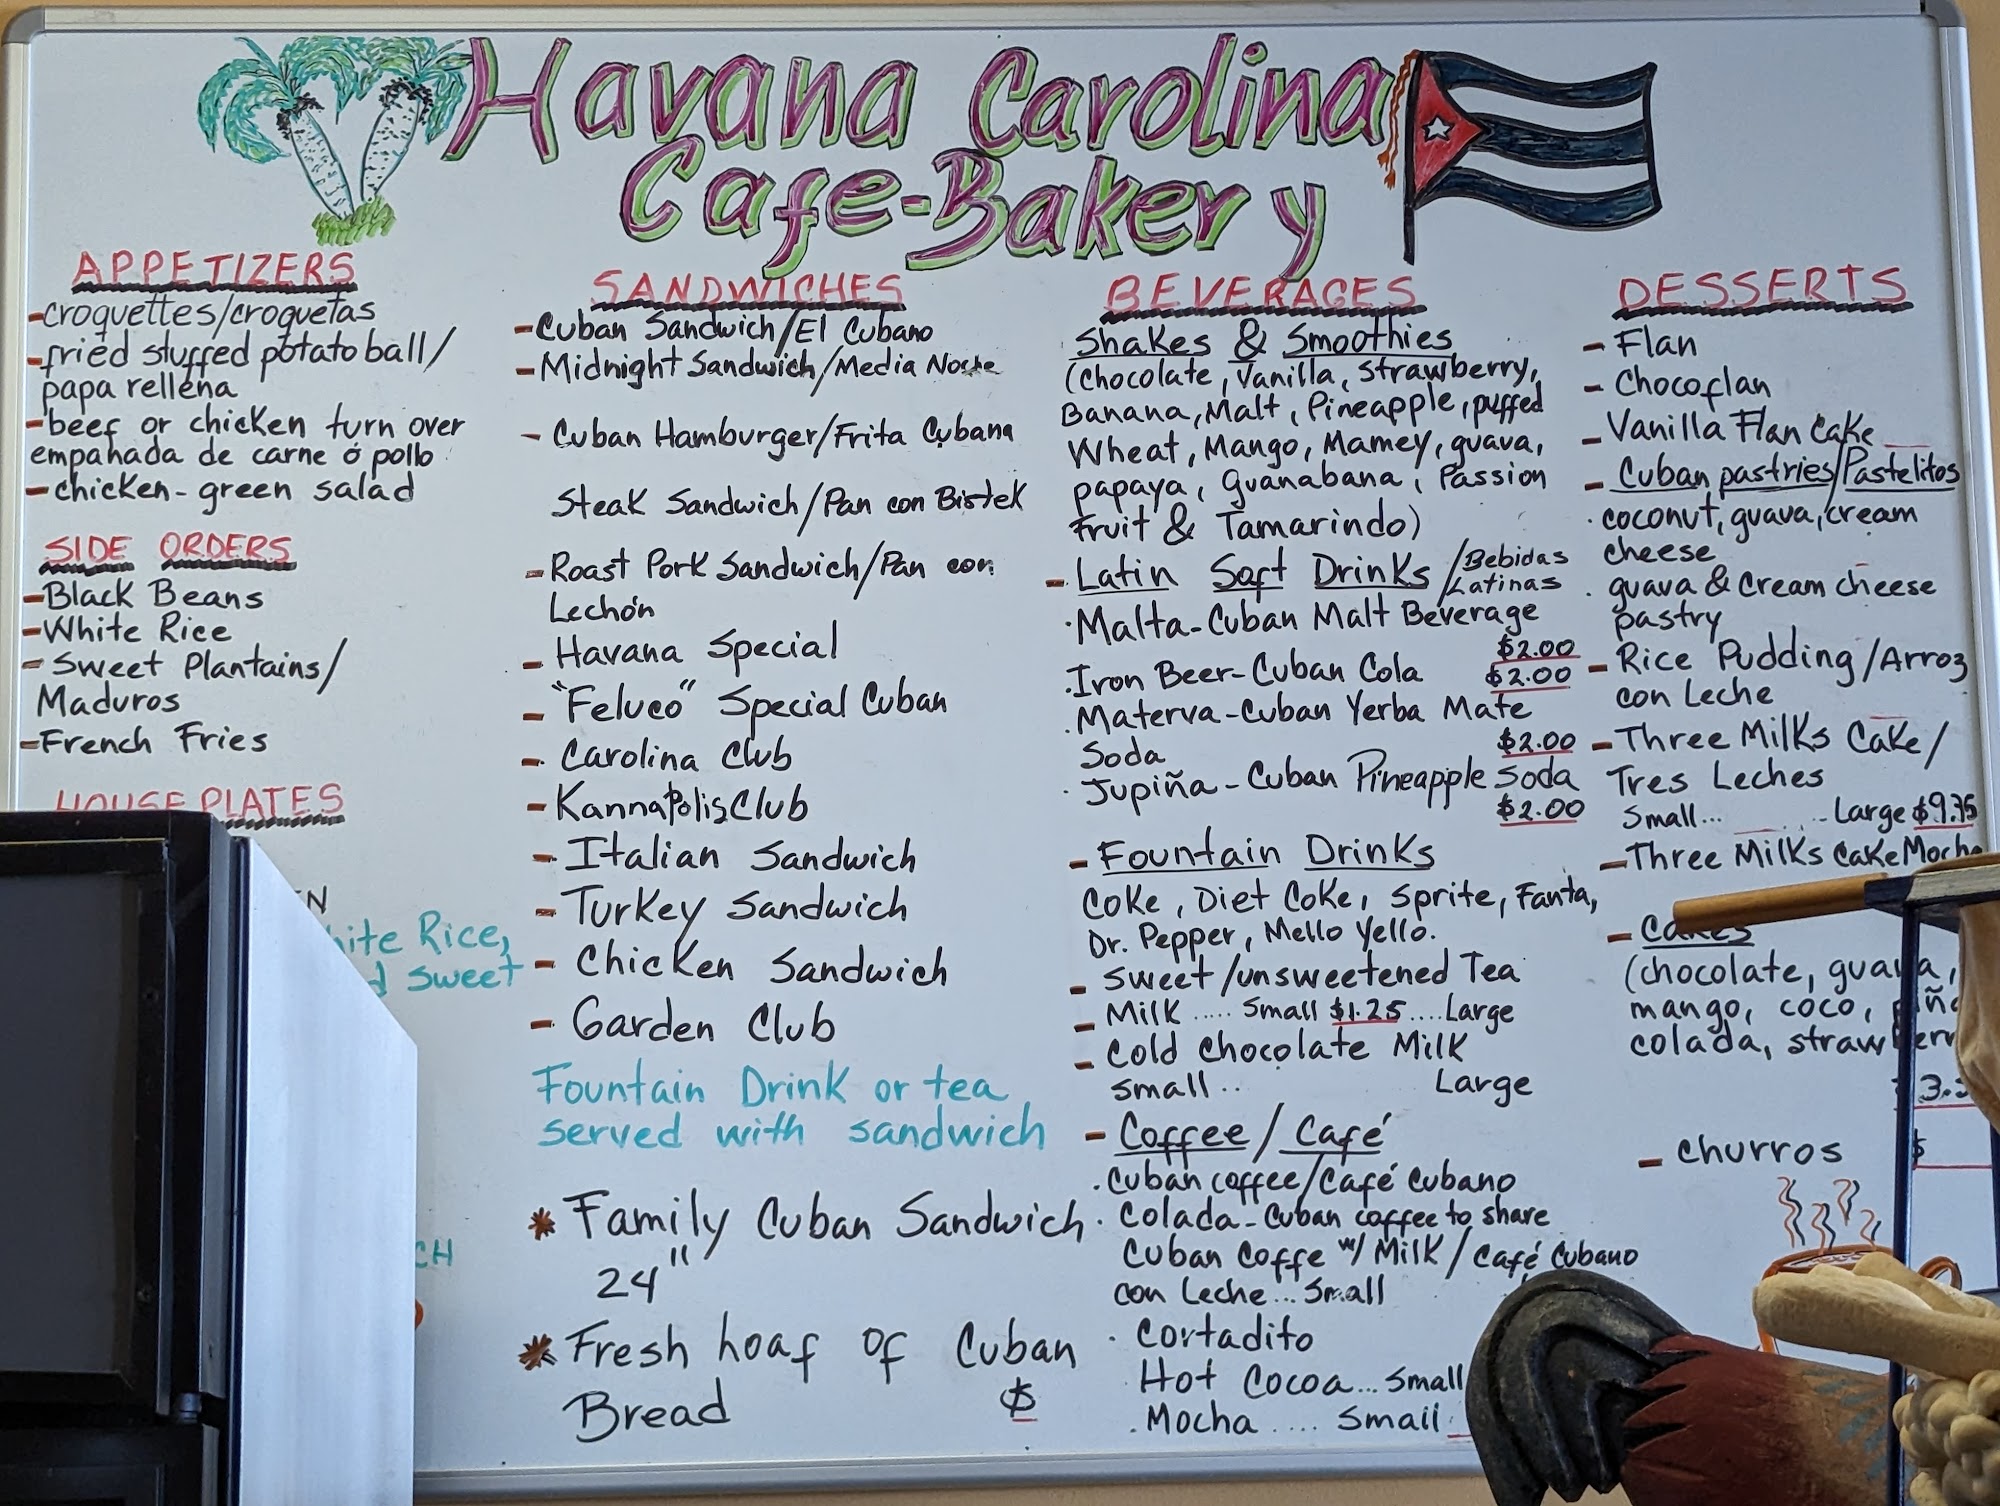 Havana Carolina
Cafe-Bakery
APPETIZERS
-croquettes/croquetas
-fried stuffed potato ball/
papa rellena
-beef or chicken turn over
empanada de carne ó pollo
-chicken-green salad
SIDE ORDERS
-Black Beans
-White Rice
-Sweet Plantains/
Maduros
-French Fries
HOUSE PLATES
Rice,
sweet
SANDWICHES
-Cuban Sandwich/El Cubano
-Midnight Sandwich/Media Noche
-Cuban Hamburger/Frita Cubana
Steak Sandwich/Pan con Bistek
-Roast Pork Sandwich/Pan con
Lechón
-Havana Special
-"Felueo" Special Cuban
-Carolina Club
-Kannapolis Club
-Italian Sandwich
-Turkey Sandwich
-Chicken Sandwich
-Garden Club
Fountain Drink or tea
served with sandwich
*Family Cuban Sandwich
24"
*Fresh hoaf of Cuban
Bread $
BEVERAGES
Shakes & Smoothies
(Chocolate, Vanilla, Strawberry,
Banana, Malt, Pineapple, puffed
Wheat, Mango, Mamey, guava,
papaya, guanabana, Passion
Fruit & Tamarindo)
-Latin Soft Drinks/Bebidas
Latinas
·Malta-Cuban Malt Beverage
$2.00
·Iron Beer-Cuban Cola $2.00
·Materva-Cuban Yerba Mate
Soda $2.00
·Jupiña-Cuban Pineapple Soda
$2.00
-Fountain Drinks
Coke, Diet Coke, Sprite, Fanta,
Dr. Pepper, Mello Yello.
-Sweet/unsweetened Tea
-Milk ..... Small $1.25 ....Large
-Cold Chocolate Milk
small .. Large
-Coffee/Café
·Cuban coffee/Café Cubano
·Colada-Cuban coffee to share
Cuban Coffe w/Milk/Café Cubano
con Leche...Small
·Cortadito
Hot Cocoa...Small
·Mocha .... Small
DESSERTS
-Flan
-Chocoflan
-Vanilla Flan Cake
-Cuban pastries/Pastelitos
·coconut, guava, cream
cheese
·guava & Cream cheese
pastry
-Rice Pudding/Arroz
con Leche
-Three Milks Cake/
Tres Leches
Small... ....Large $9.75
-Three Milks Cake Mocha
-Cakes
(chocolate, guava,
mango, coco, piña
colada,
-churros $